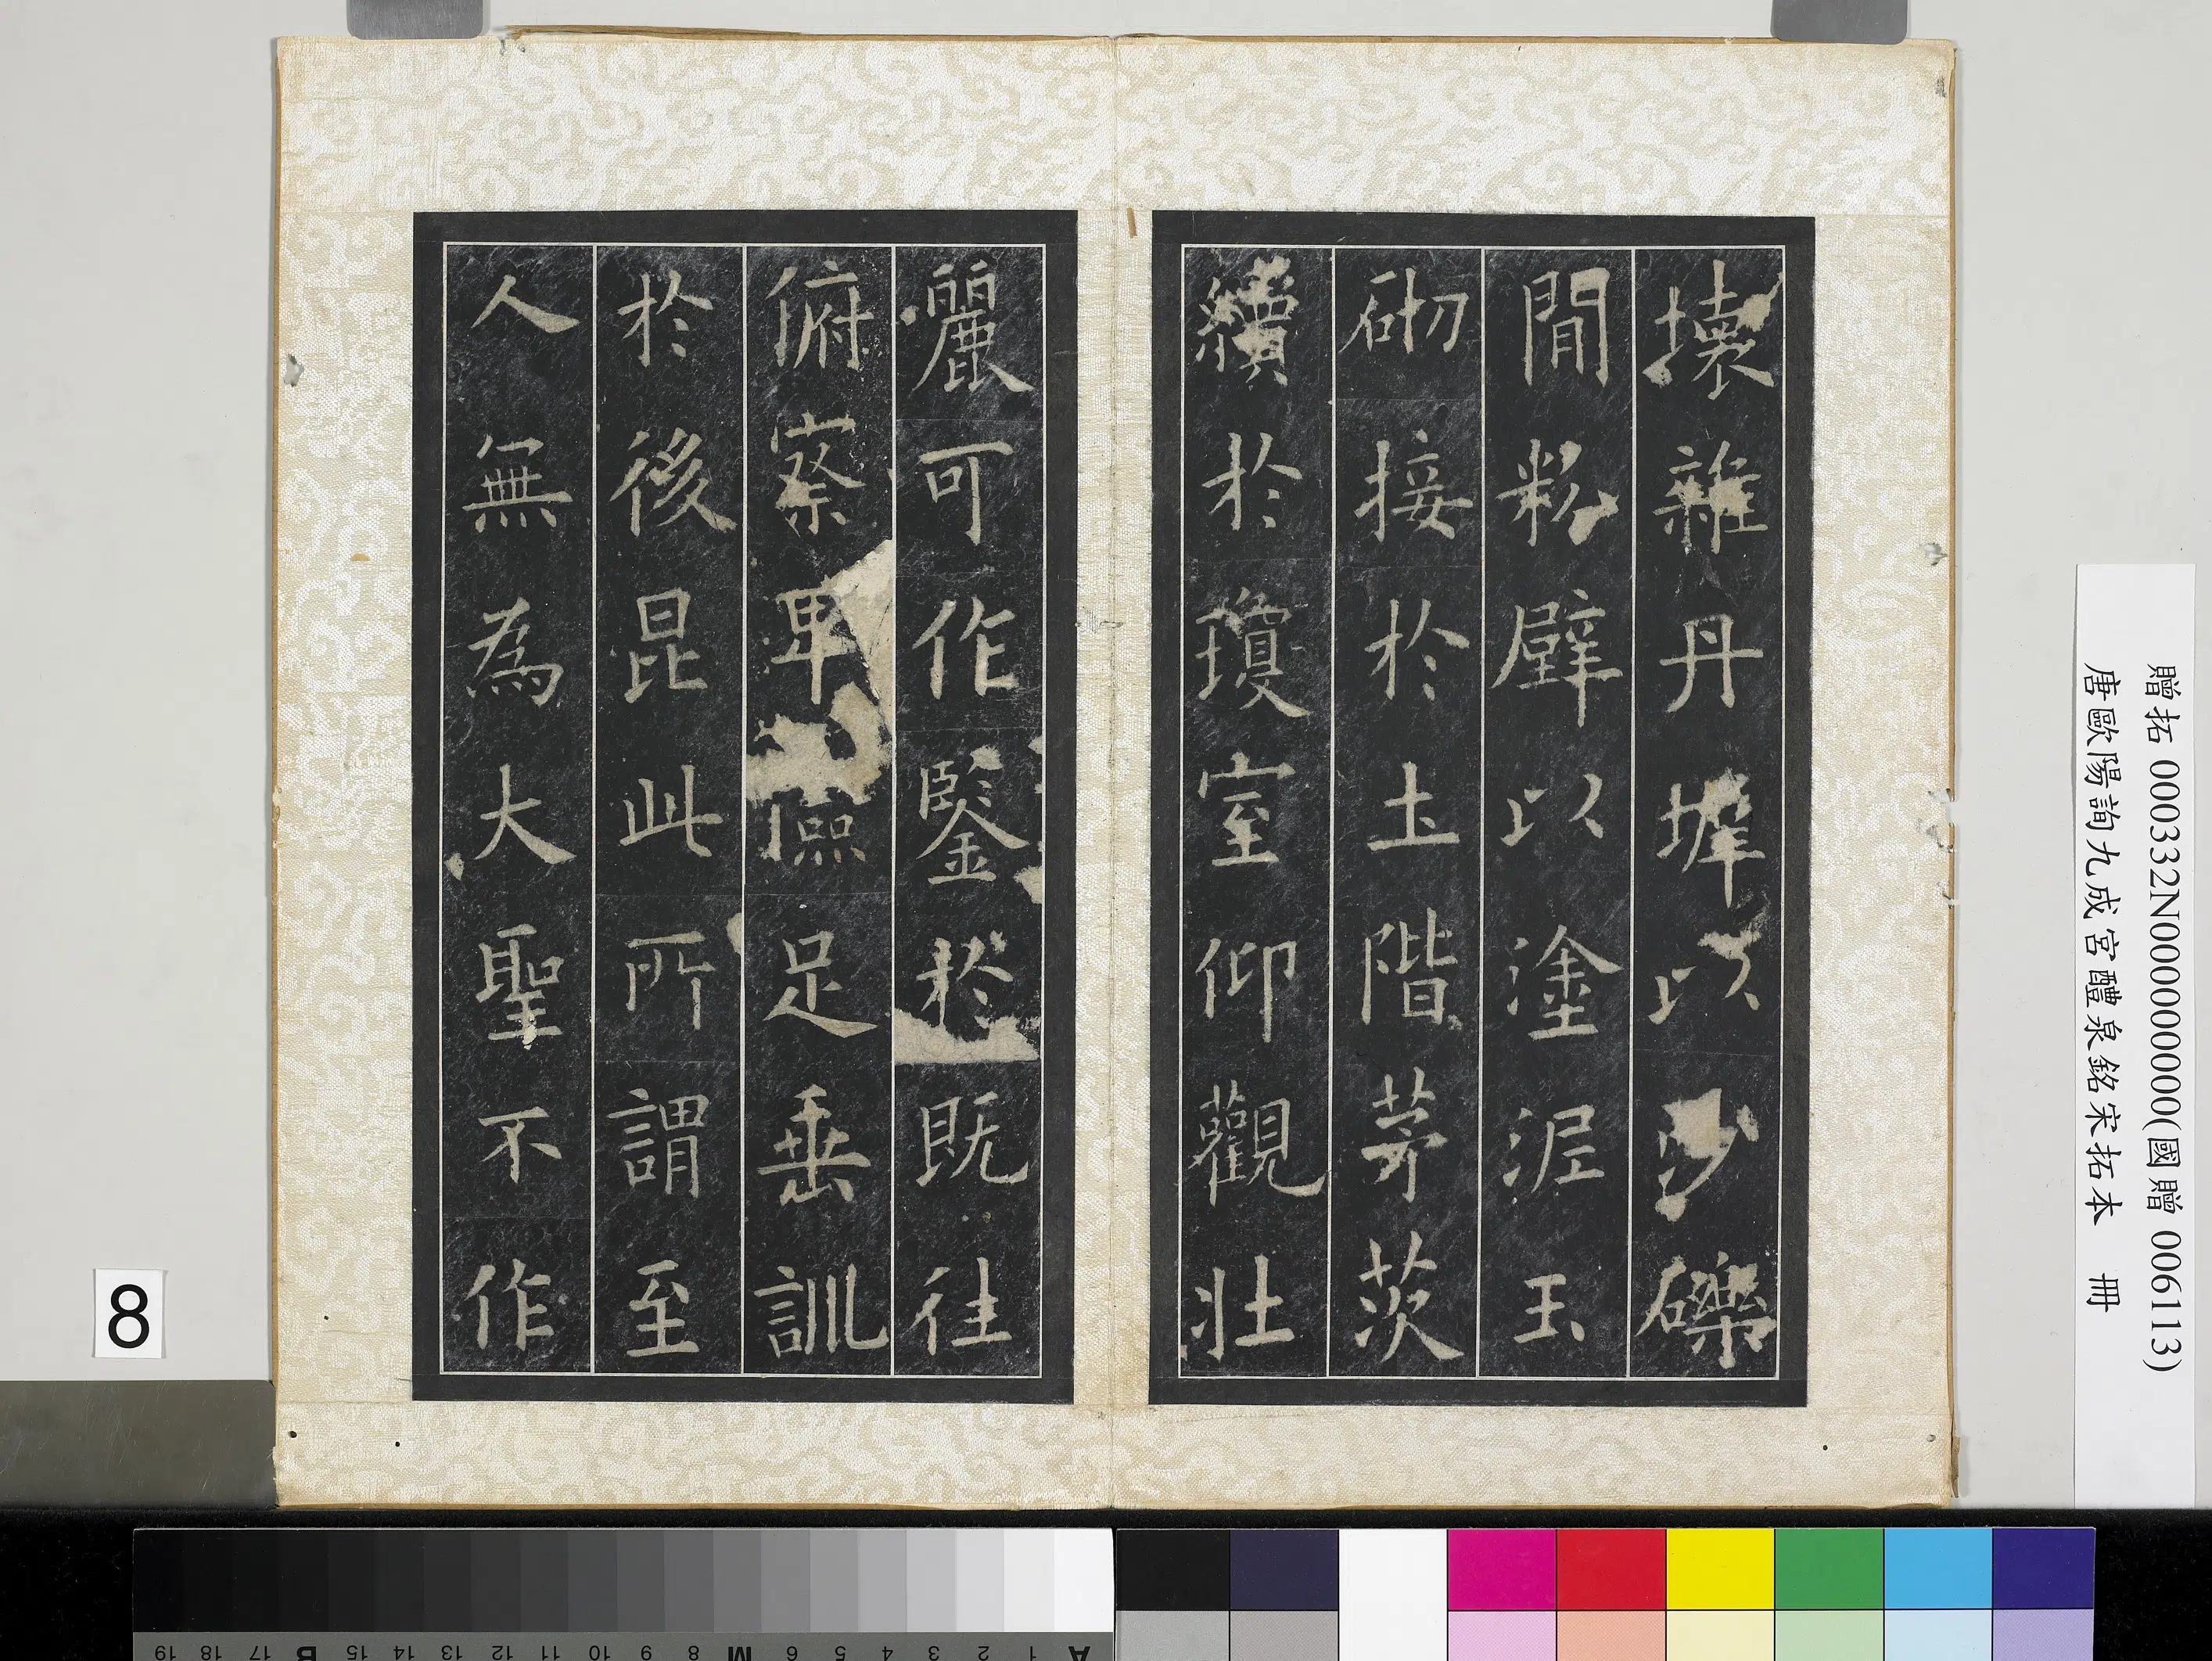 壞雜丹墀以沙礫
閒粉壁以塗泥玉
砌接於土階茅茨
續於瓊室仰觀壯
麗可作鑒於既往
俯察卑儉足垂訓
於後昆此所謂至
人無為大聖不作
贈拓 000332N000000000(國贈 006113)
唐歐陽詢九成宮醴泉銘宋拓本 冊
8
A 1 2 3 4 5 6 M 8 9 10 11 12 13 14 15 B 17 18 19